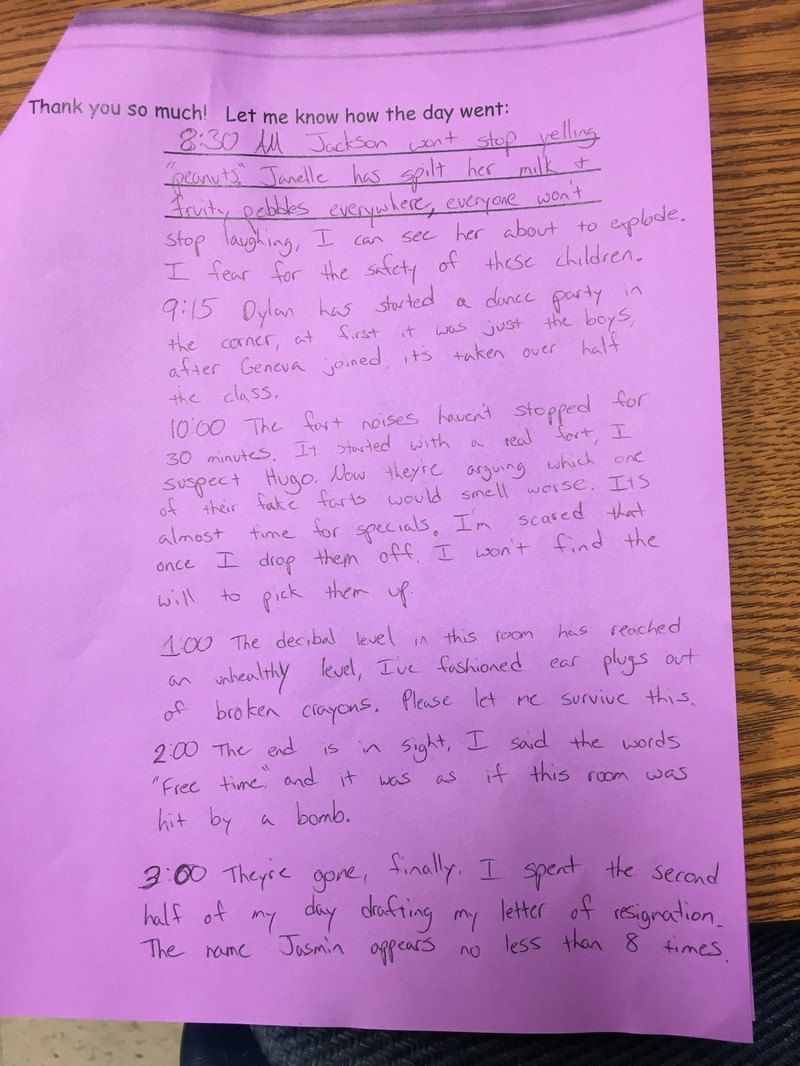 Thank you so much! Let me know how the day went:
8:30 AM Jackson wont stop yelling
"peanuts." Janelle has spilt her milk +
fruity pebbles everywhere, everyone won't
stop laughing, I can see her about to explode.
I fear for the safety of these children.
9:15 Dylan has started a dance party in
the corner, at first it was just the boys,
after Geneva joined, its taken over half
the class.
10:00 The fart noises haven't stopped for
30 minutes. It started with a real fart, I
suspect Hugo. Now they're arguing which one
of their fake farts would smell worse. Its
almost time for specials. I'm scared that
once I drop them off, I won't find the
will to pick them up.
1:00 The decibal level in this room has reached
an unhealthy level, I've fashioned ear plugs out
of broken crayons. Please let me survive this.
2:00 The end is in sight, I said the words
"Free time" and it was as if this room was
hit by a bomb.
3:00 They're gone, finally. I spent the second
half of my day drafting my letter of resignation.
The name Jasmin appears no less than 8 times.